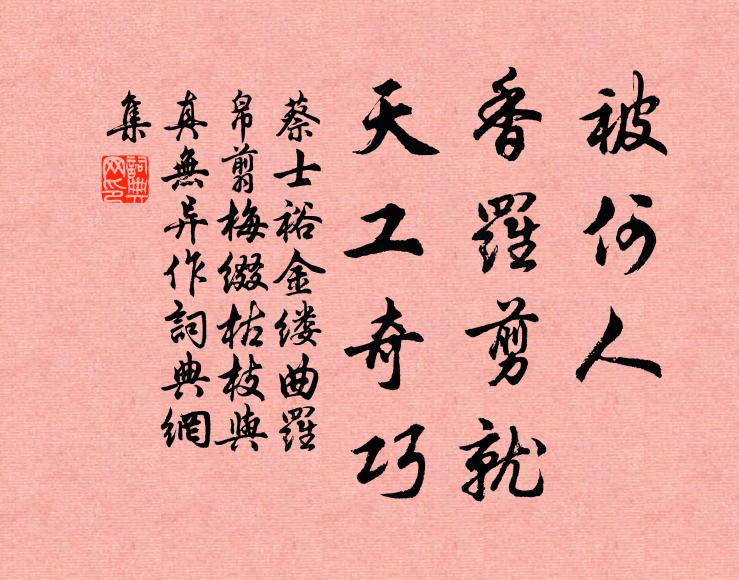 被何人
香羅剪就
天工奇巧
蔡士裕金缕曲羅
帛剪梅缀枯枝與
真無异作詞典網
集
詞典
网印